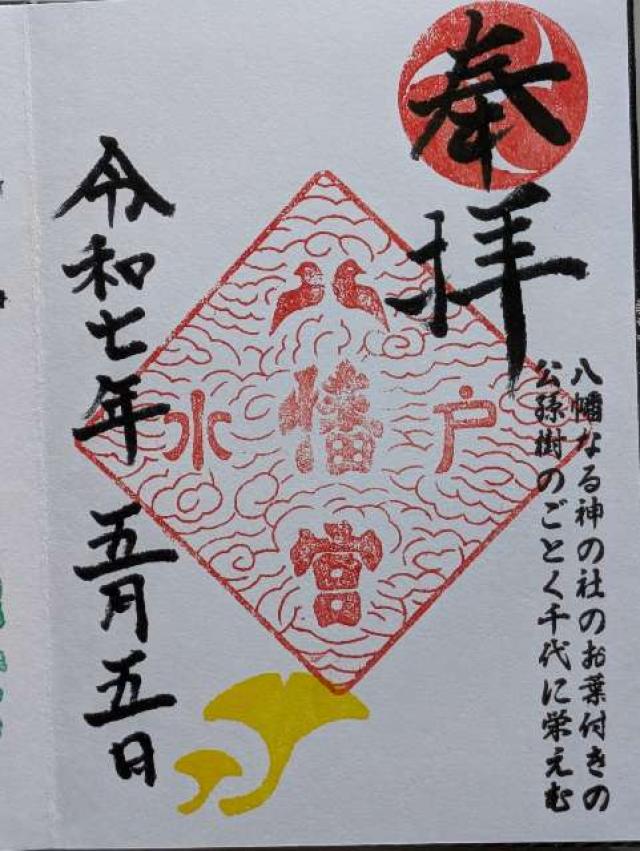 奉拝
八幡なる神の社のお葉付きの
公孫樹のごとく千代に栄えむ
水戸
八幡宮
令和七年 五月五日